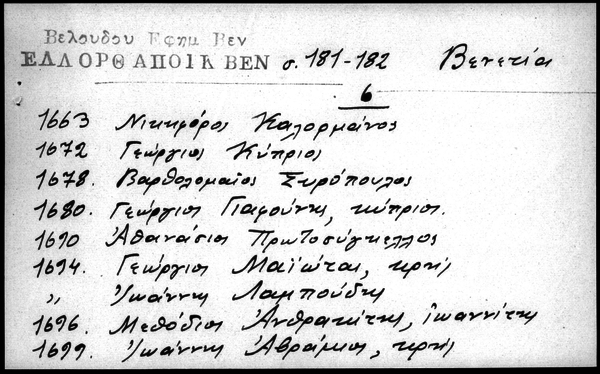 Βελουδου Εφημ Βεν
ΕΛΛ ΟΡΘ ΑΠΟΙΚ ΒΕΝ σ. 181-182 Βενετία
6
1663 Νικηφόρος Καλορμάνος
1672 Γεώργιος Κύπριος
1678. Βαρθολομαῖος Συρόπουλος
1680. Γεώργιος Γιαφούνης, κύπριος.
1690 Ἀθανάσιος Πρωτοσύγκελλος
1694. Γεώργιος Μαϊώται, κρής
„ Ἰωάννης Λαμπούδης
1696. Μεθόδιος Ἀνθρακίτης, ἰωαννίτης
1699. Ἰωάννης Ἀβράμιος, κρής